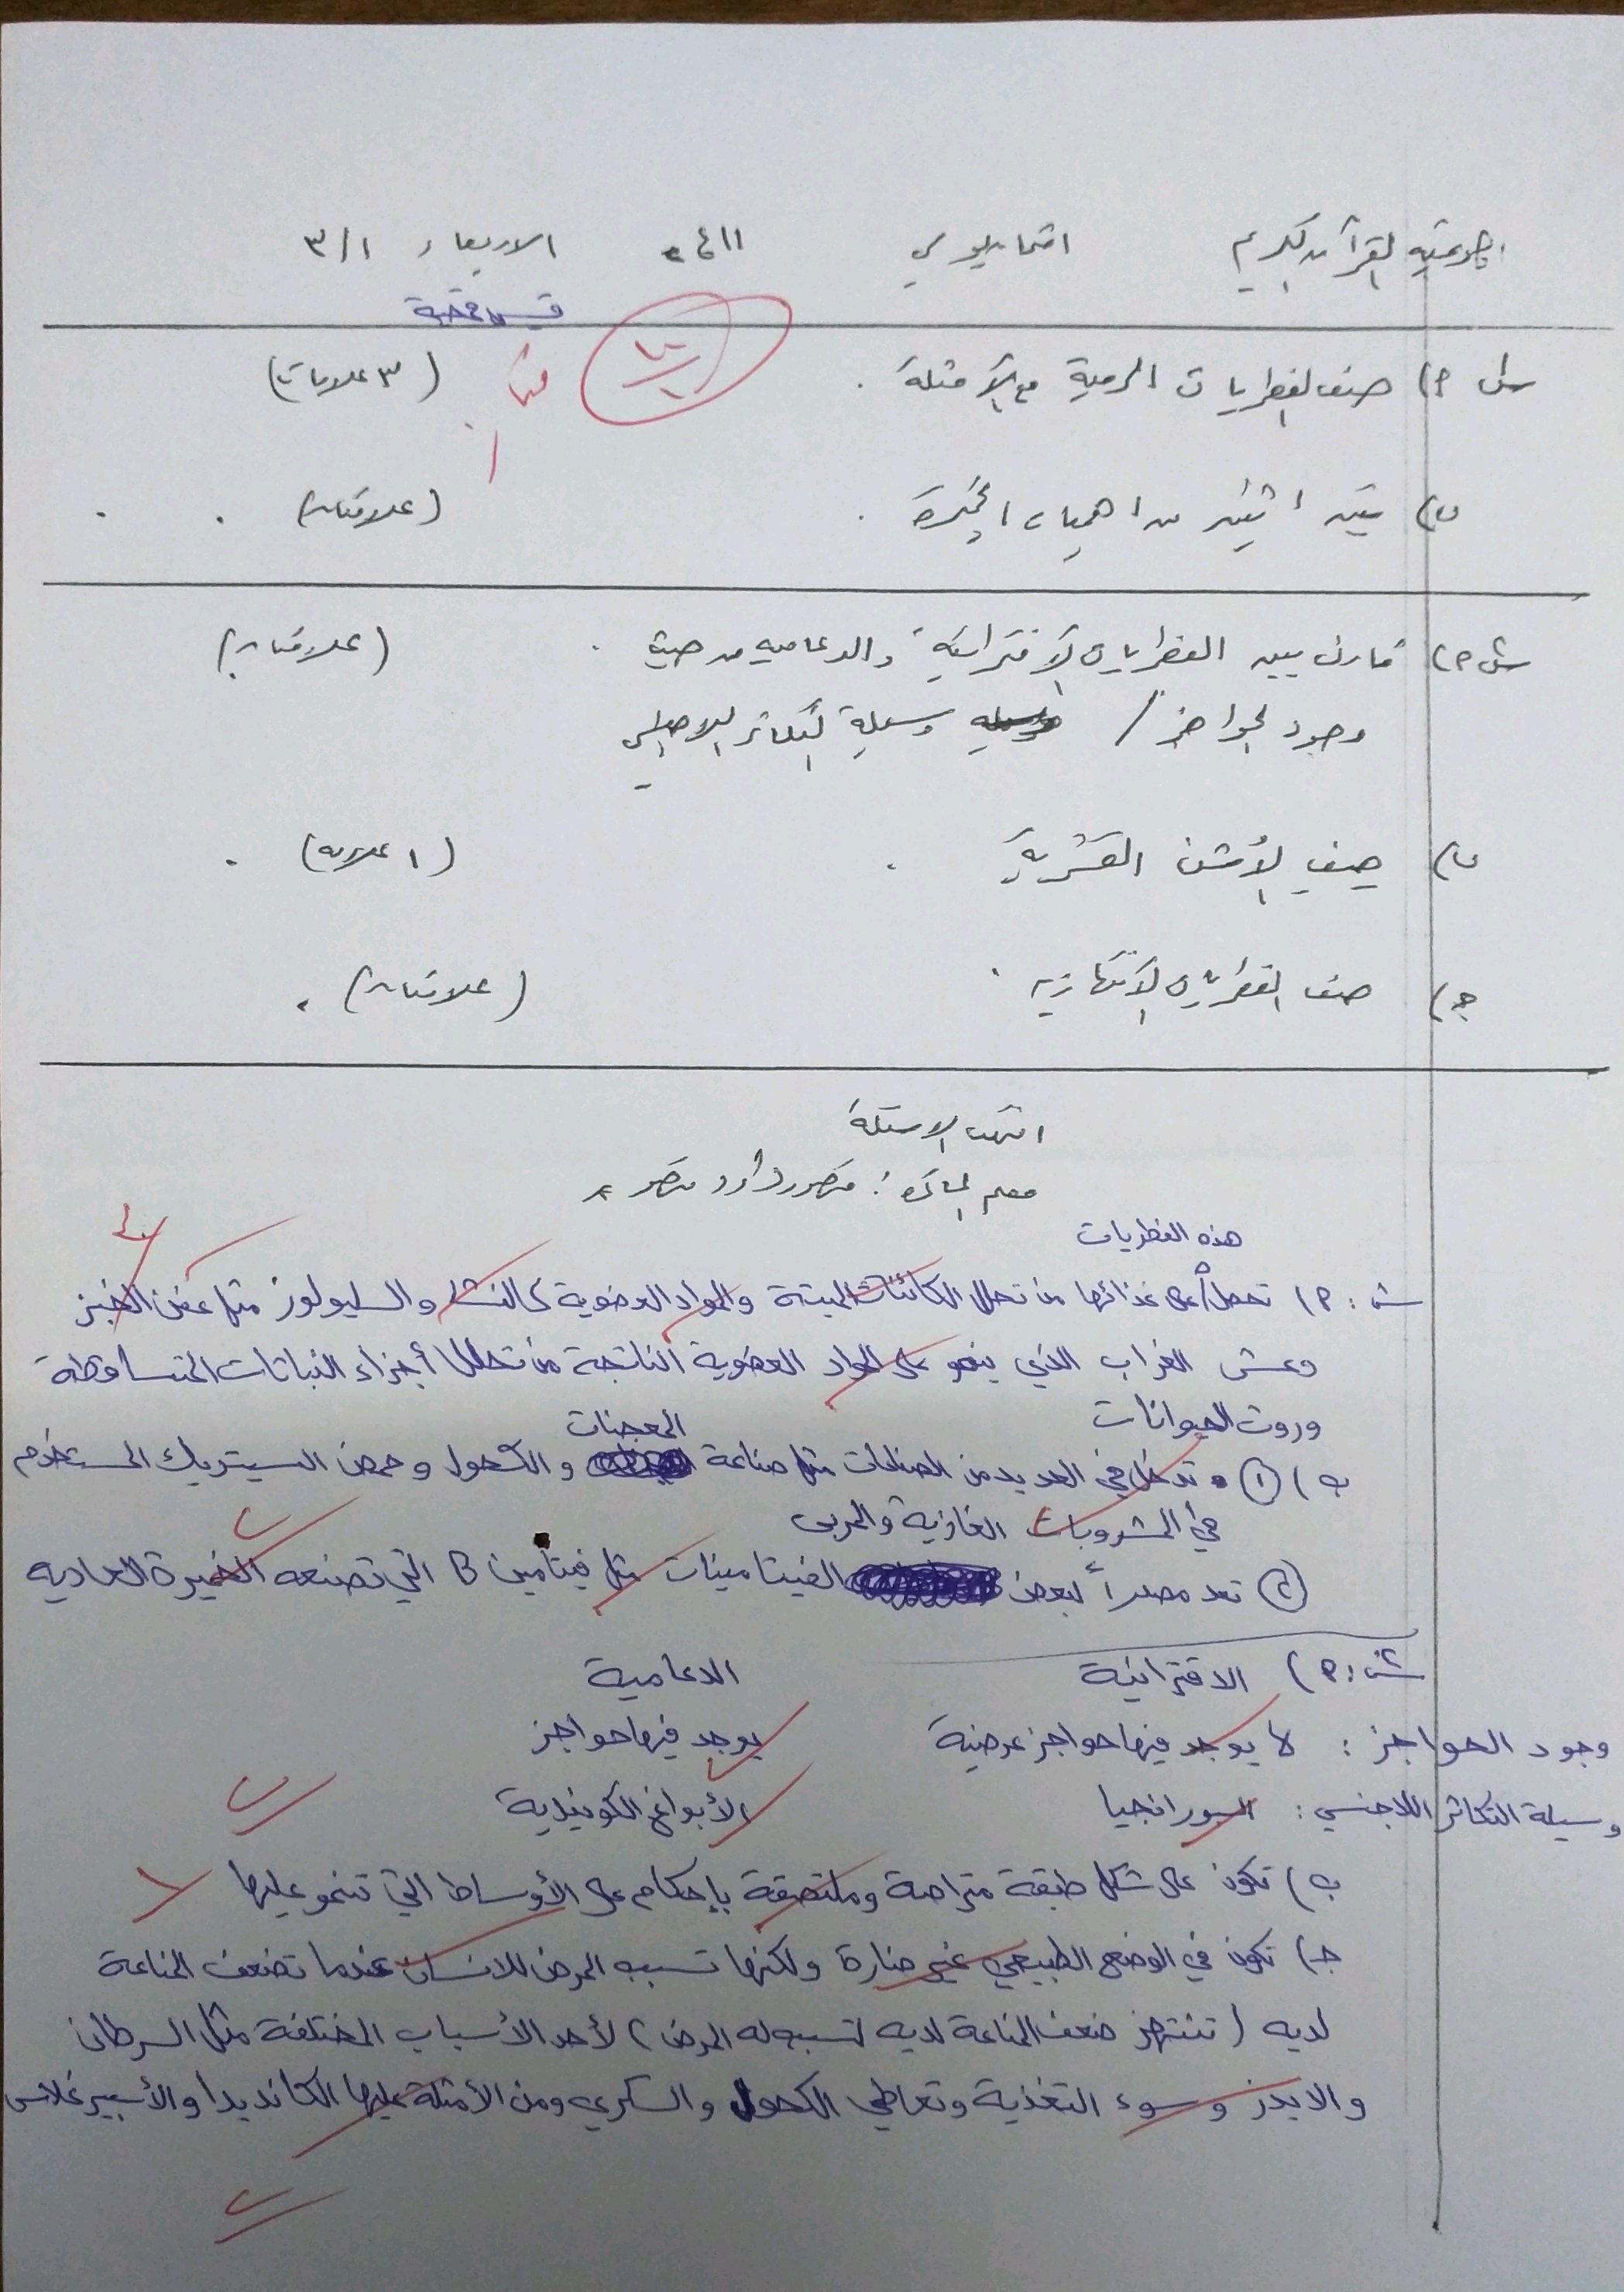 القرآن الكريم الاربعاء ٣/١
س١ ٢) صنف الفطريات الرمية مع الأمثلة . (٣ علامات)
ب) بين اثنين من اهميات الخميرة . (علامتان)
س٢ ٢) قارن بين الفطريات الاقترانية والدعامية من حيث . (علامتان)
وجود الحواجز / وسيلة التكاثر اللاجنسي
ب) صف الأشن القشرية . (١ علامة)
ج) صف الفطريات الانتهازية . (علامتان)
انتهت الاسئلة
معلم المادة : منصور داود منصور
هذه الفطريات
س١: ٢) تحصل على غذائها من تحلل الكائنات الميتة والمواد العضوية كالنشا والسليولوز مثل عفن الخبز
وعش الغراب الذي ينمو على المواد العضوية الناتجة من تحلل أجزاء النباتات المتساقطة
وروث الحيوانات
ب) ① تدخل في العديد من الصناعات مثل صناعة المعجنات والكحول وحمض السيتريك المستخدم
في المشروبات الغازية والمربى
② تعد مصدراً لبعض الفيتامينات مثل فيتامين B التي تصنعه الخميرة العادية
س٢: ٢) الاقترانية الدعامية
وجود الحواجز : لا يوجد فيها حواجز عرضية يوجد فيها حواجز
وسيلة التكاثر اللاجنسي : السبورانجيا الأبواغ الكونيدية
ب) تكون على شكل طبقة متراصة وملتصقة بإحكام على الأوساط التي تنمو عليها
جـ) تكون في الوضع الطبيعي غير ضارة ولكنها تسبب المرض للانسان عندما تضعف المناعة
لديه (تنتهز ضعف المناعة لديه لتسبب له المرض) لأحد الأسباب المختلفة مثل السرطان
والايدز وسوء التغذية وتعاطي الكحول والسكري ومن الأمثلة عليها الكانديدا والأسبيرغلاس